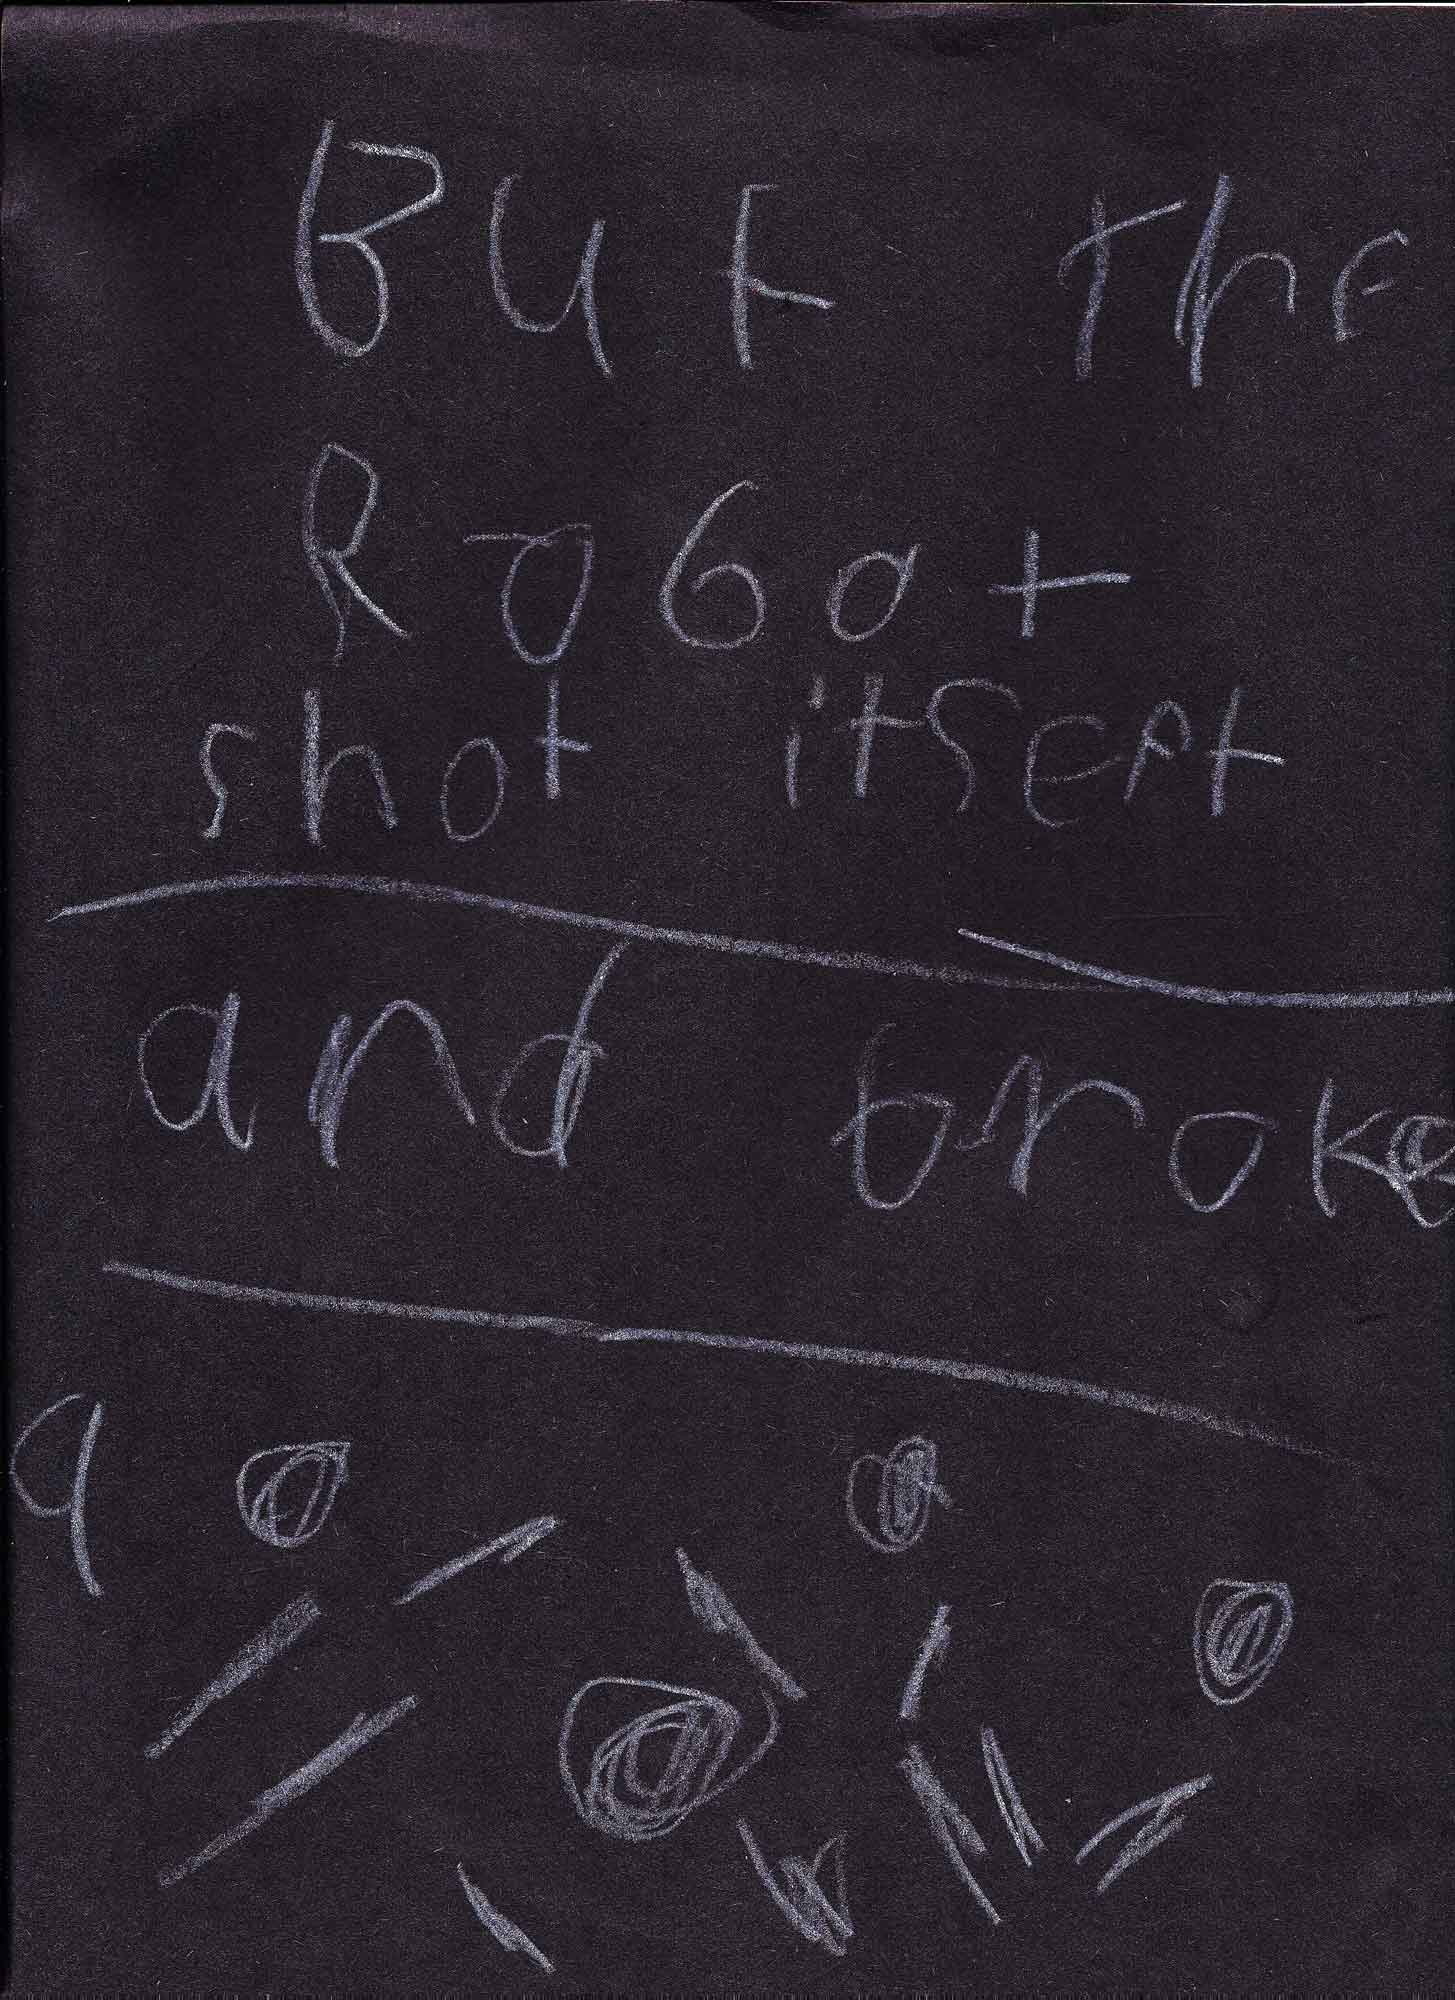 BUt the
Robot
shot itSElf
and broke
9